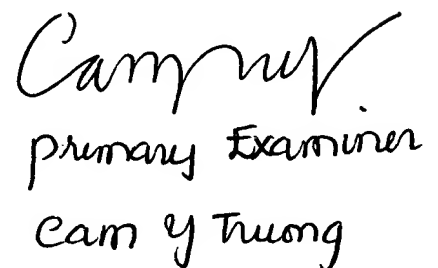 primary Examiner
Cam Y Truong